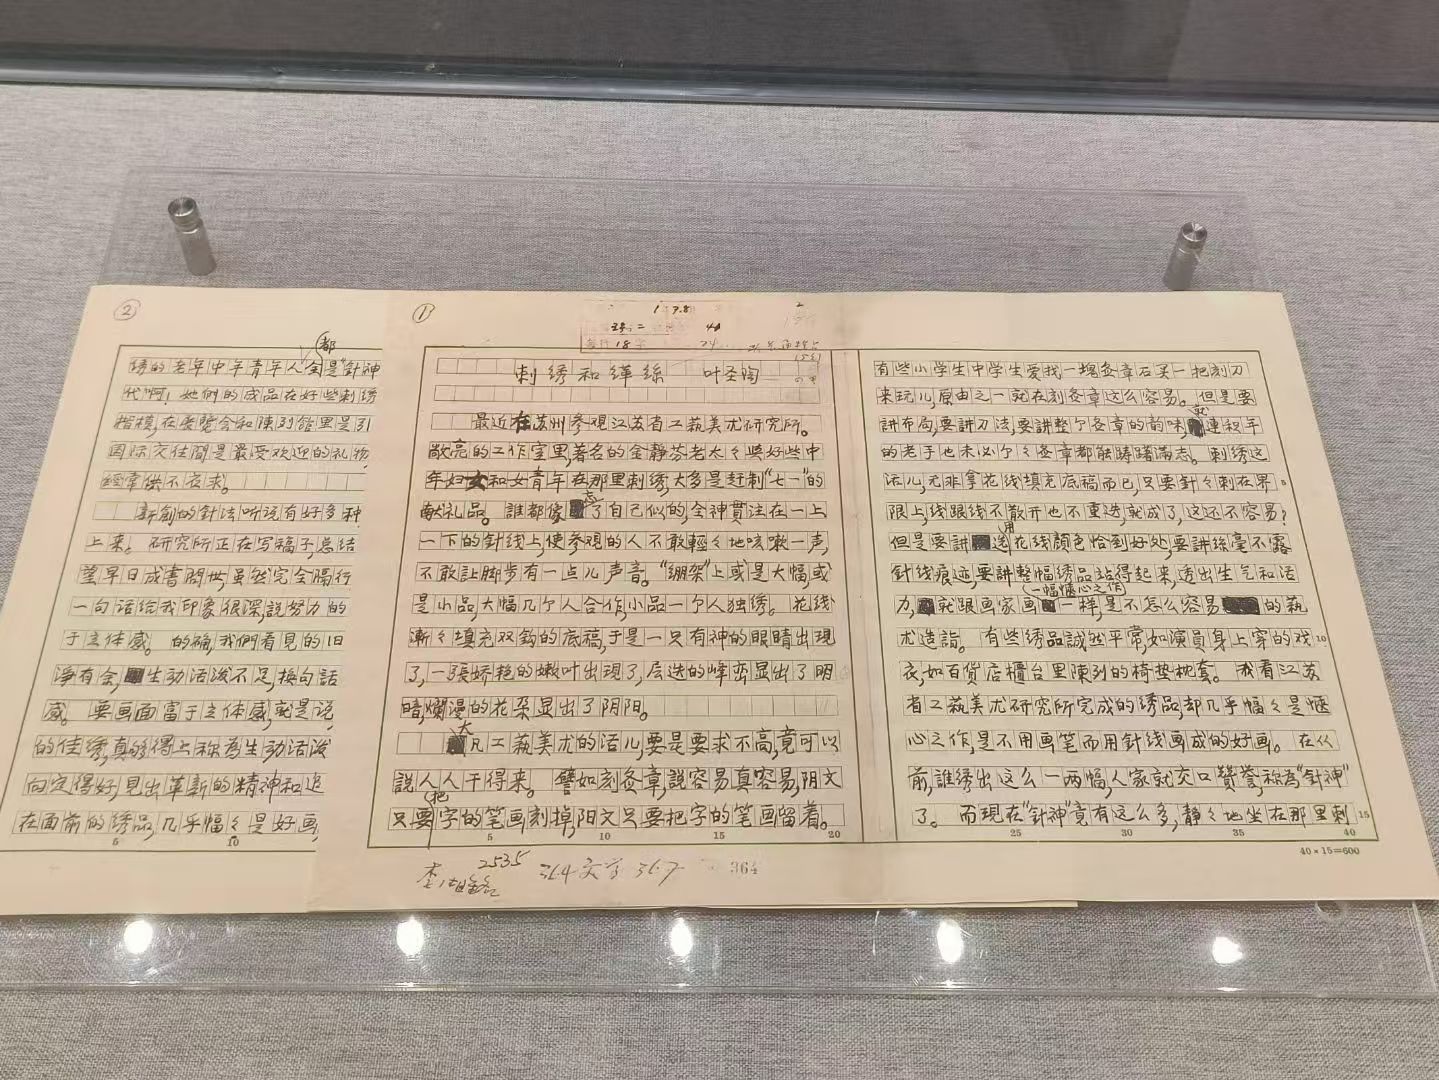 ①
刺绣和缂絲 叶圣陶
最近在苏州参观江苏省工藝美术研究所。
敞亮的工作室里,著名的金靜芬老太々與好些中
年妇女和女青年在那里刺绣,大多是赶制“七一”的
献礼品。誰都像忘了自己似的,全神貫注在一上
一下的針线上,使参观的人不敢輕々地咳嗽一声,
不敢让脚步有一点儿声音。“绷架”上或是大幅或
是小品,大幅几个人合作,小品一个人独绣。花线
漸々填充双鈎的底稿,于是一只有神的眼睛出現
了,一張娇艳的嫩叶出現了,层迭的峰峦显出了明
暗,爛漫的花朵显出了阴阳。
大凡工藝美术的活儿,要是要求不高,竟可以
説人人干得来。譬如刻图章,説容易真容易,阴文
只要把字的笔画刻掉,阳文只要把字的笔画留着。
5 10 15 20
2535
364
有些小学生中学生爱找一塊图章石买一把刻刀
来玩儿,原由之一就在刻图章这么容易。但是要
講布局,要講刀法,要講整个图章的韵味,就連积年
的老手也未必个々图章都能踌躇滿志。刺绣这
活儿,尤非拿花线填充底稿而已,只要針々刺在界
限上,线跟线不散开也不重迭,就成了,这还不容易?
但是要講选用花线顏色恰到好处,要講絲毫不露
針线痕迹,要講整幅绣品站得起来,透出生气和活
力,就跟画家画一幅愜心之作一样,是不怎么容易的藝
术造詣。有些绣品誠然平常,如演員身上穿的戏
衣,如百貨店櫃台里陳列的椅垫枕套。我看江苏
省工藝美术研究所完成的绣品,却几乎幅々是愜
心之作,是不用画笔而用針线画成的好画。在从
前,誰绣出这么一两幅,人家就交口贊誉,称為“針神”
了。而現在“針神”竟有这么多,靜々地坐在那里刺
25 30 35 40
5
10
15
40×15=600
②
绣的老年中年青年人都是“針神
代啊!她們的成品在好些刺绣
楷模,在展覽会和陳列館里是引
国际交往間是最受欢迎的礼物
經常供不应求。
新創的針法听説有好多种
上来。研究所正在写稿子,总結
望早日成書問世,虽然完全隔行
一句话给我印象很深,説努力的
于立体感。的确,我們看見的旧
淨有余,生动活泼不足,换句話
感。要画面富于立体感,就是说
的佳绣,真够得上称為生动活泼
向定得好,見出革新的精神和追
在面前的绣品,几乎幅々是好画,
5 10